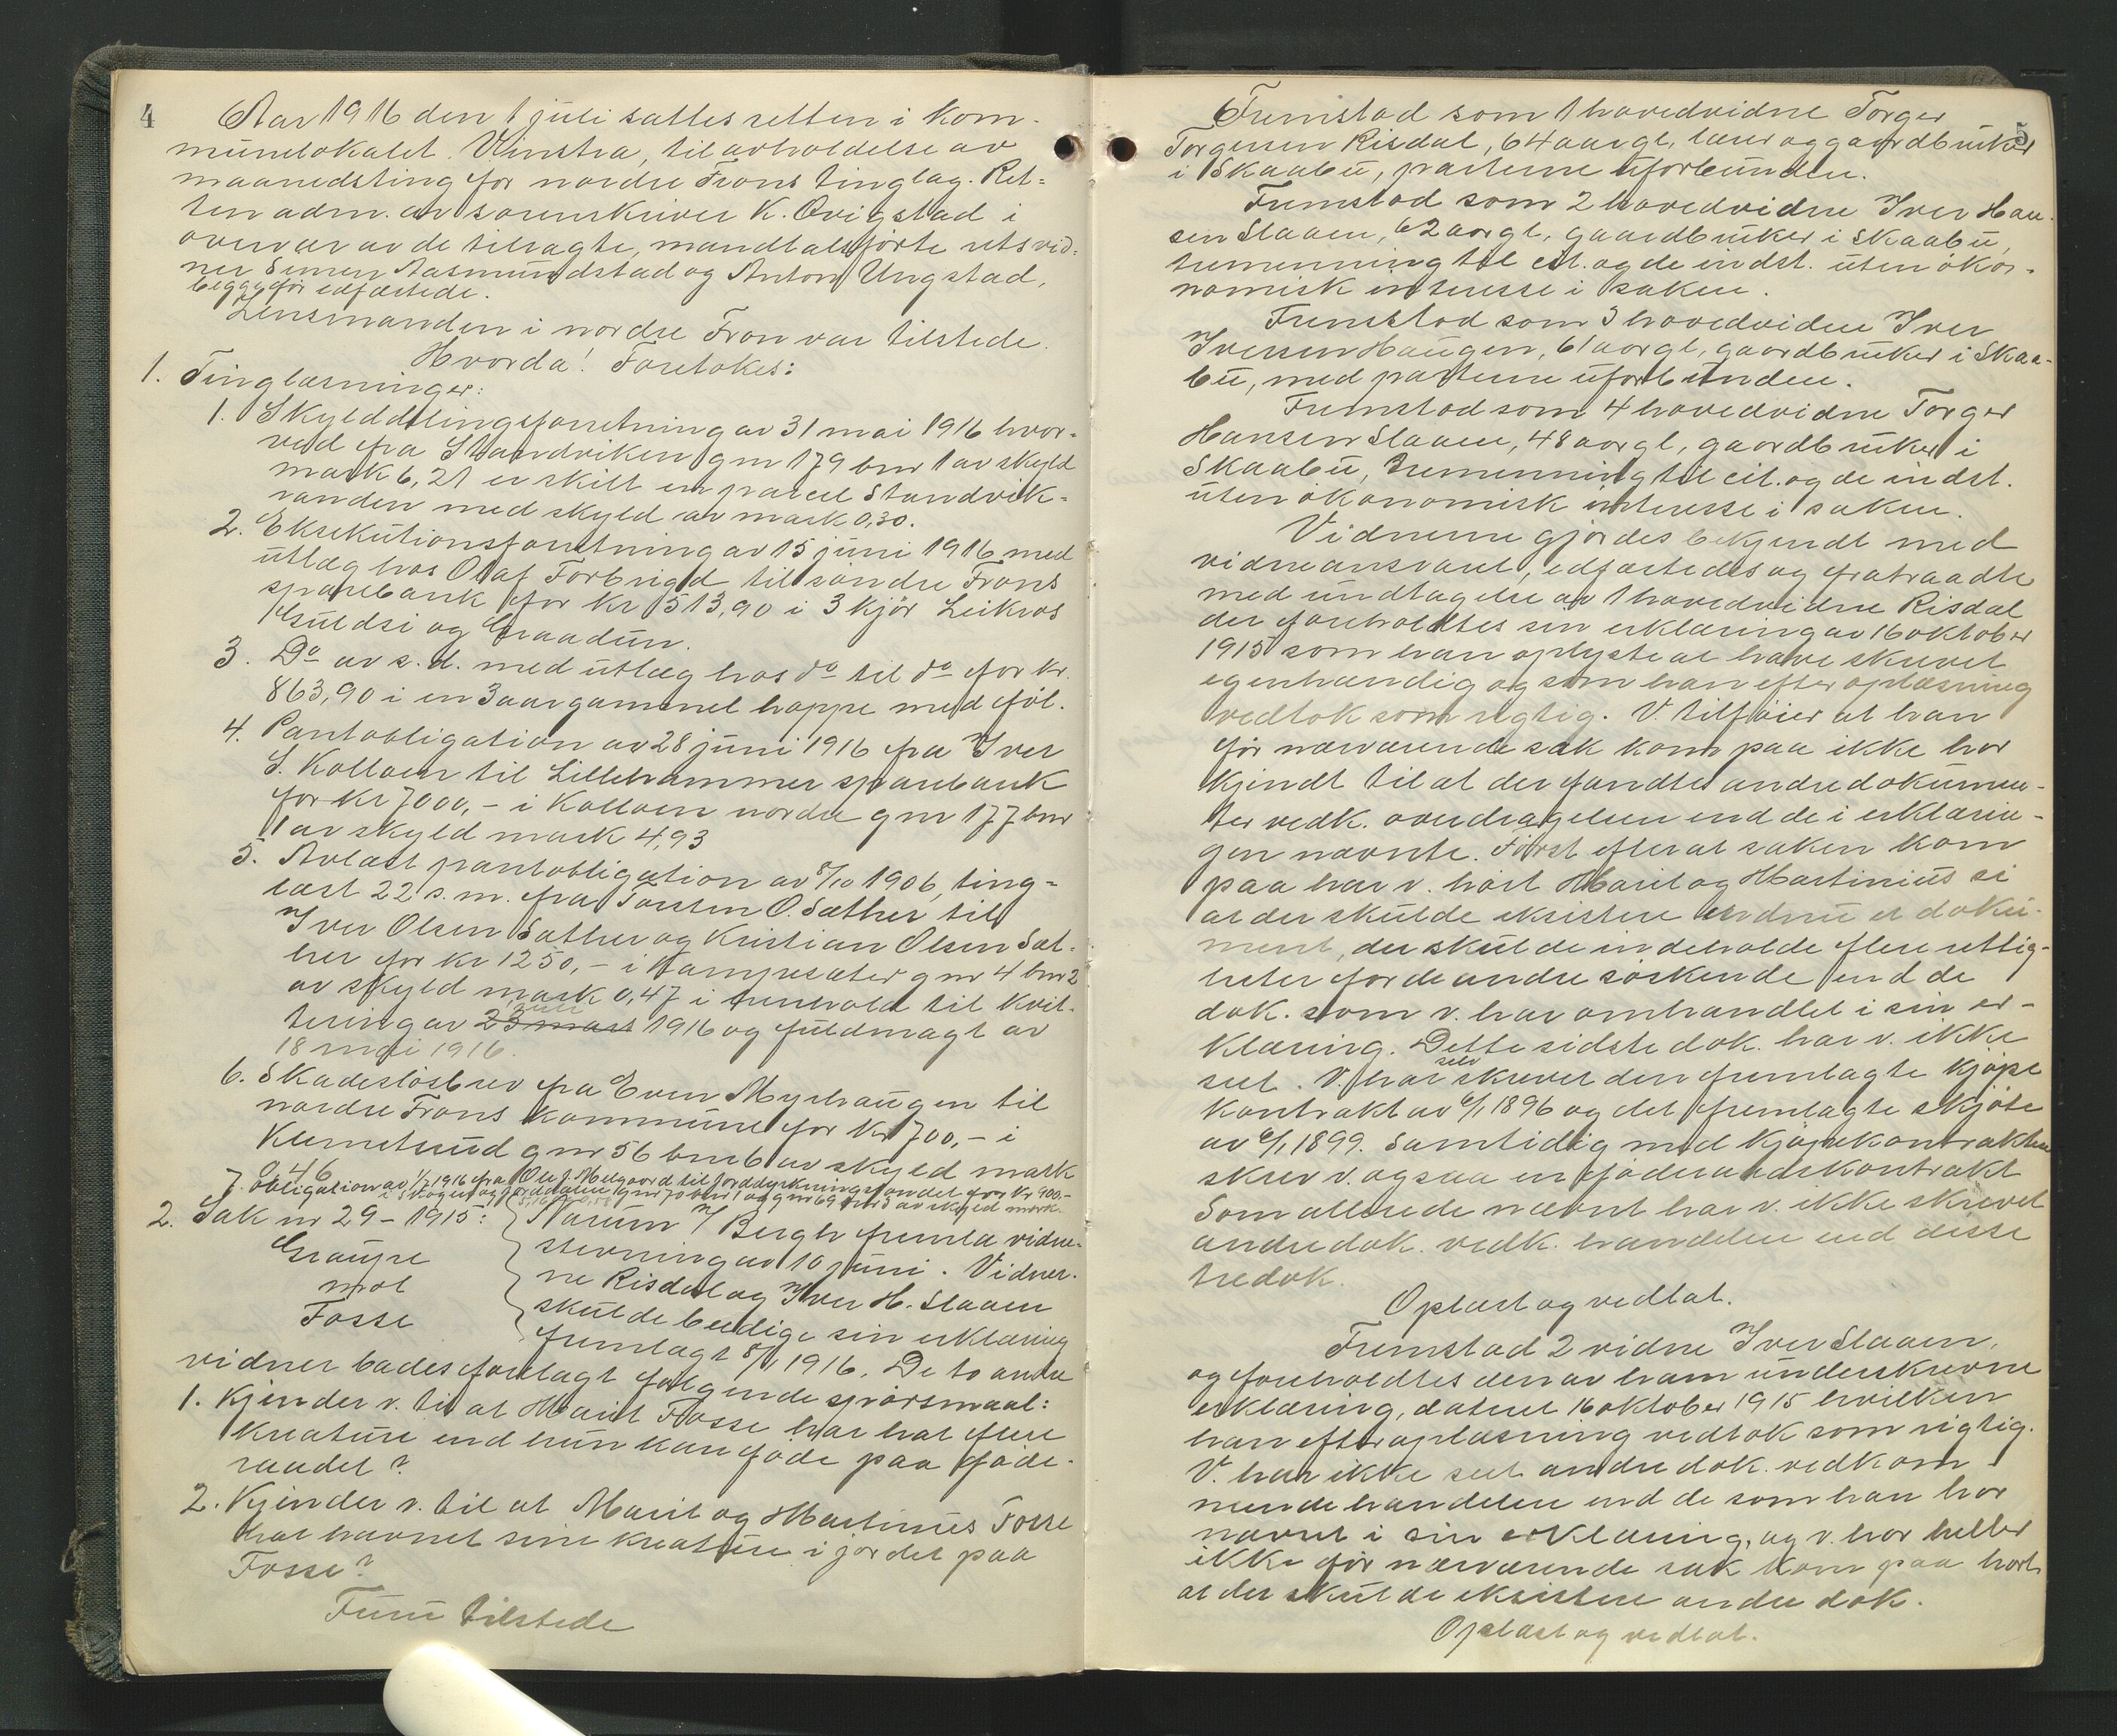 4
Aar 1916 den 1 juli sattes retten i kom-
munelokalet Vinstra, til avholdelse av
maanedsting for nordre Frons tinglag. Ret-
ten adm. av sorenskriver K. Ovigstad i
overvær av de tilsagte, mandtalsførte retsvid-
ner Simen Aasmundstad og Anton Ungstad,
begge før edfæstede.
Lensmanden i nordre Fron var tilstede.
Hvorda! Foretokes:
1. Tinglæsninger:
1. Skylddelingsforretning av 31 mai 1916 hvor-
ved fra Standviken gnr 179 bnr 1 av skyld
mark 6,21 er skilt en parcel Standvik-
randen med skyld av mark 0,30.
2. Eksekutionsforretning av 15 juni 1916 med
utlæg hos Olaf Forbrigd til søndre Frons
sparebank for kr 513,90 i 3 kjør Leikros
Guldsi og Graadun.
3. Do av s.d. med utlæg hos do til do for kr.
863,90 i en 3 aar gammel hoppe med føl.
4. Pantobligation av 28 juni 1916 fra Iver
S. Kolloen til Lillehammer sparebank
for kr 7000,- i Kolloen nordre gnr 177 bnr
1 av skyld mark 4,93
5. Avlæst pantobligation av 8/10 1906, ting-
læst 22 s.m. fra Torsten O. Sæther til
Iver Olsen Sæther og Kristian Olsen Sæt-
her for kr 1250,- i Kampesæter gnr 4 bnr 2
av skyld mark 0,47 i henhold til kvit-
tering av 23 mars juni 1916 og fuldmagt av
18 mai 1916.
6. Skadesløsbrev fra Even Myrhaugen til
nordre Frons kommune for kr 700,- i
Klemetsrud gnr 56 bnr 6 av skyld mark
0,46
7. Obligation av 1/7 1916 fra Ole J. Melgaard til Jorddyrkningsfondet for kr 900.-
i Skogen og Jorddalen gnr 70 bnr 1 og gnr 69 bnr 3 av skyld mark
2. Sak nr 29 - 1915:
Graupe
mot
Fosse
Narum v/ Bergh fremla vidne-
stevning av 10 juni. Vidner-
ne Risdal og Iver H. Slaaen
skulde beedige sin erklæring
fremlagt 8/1 1916. De to andre
vidner bades forelagt følgende spørsmaal:
1. Kjender v. til at Marit Fosse har hat flere
kreature end hun kan føde paa føde-
raadet?
2. Kjender v. til at Marit og Martinus Fosse
har havnet sine kreature i jordet paa
Fosse?
Furu tilstede
5
Fremstod som 1 hovedvidne Torger
Torgersen Risdal, 64 aar gl, lærer og gaardbruker
i Skaabu, parterne uforbunden.
Fremstod som 2 hovedvidne Iver Han-
sen Slaaen, 62 aar gl, gaardbruker i Skaabu,
tremenning til cit. og de indst. uten øko-
nomisk interesse i saken.
Fremstod som 3 hovedvidne Iver
Iversen Haugen, 61 aar gl, gaardbruker i Skaa-
bu, med parterne uforbunden.
Fremstod som 4 hovedvidne Torger
Hansen Slaaen, 48 aar gl, gaardbruker i
Skaabu, tremenning til cit. og de indst.
uten økonomisk interesse i saken.
Vidnerne gjordes bekjendt med
vidneansvaret, edfæstedes og fratraadte
med undtagelse av 1 hovedvidne Risdal
der foreholdtes sin erklæring av 16 oktober
1915 som han oplyste at have skrevet
egenhændig og som han efter oplæsning
vedtok som rigtig. V. tilføier at han
før nærværende sak kom paa ikke har
kjendt til at der fandtes andre dokumen-
ter vedk. overdragelsen end de i erklærin-
gen nævnte. Først efterat saken kom
paa har v. hørt Marit og Martinius si
at der skulde eksistere endnu et doku-
ment, der skulde indeholde flere rettig-
heter for de andre søskende end de
dok. som v. har omhandlet i sin er-
klæring. Dette sidste dok. har v. ikke
seet. V. har selv skrevet den fremlagte kjøpe
kontrakt av 6/1 1896 og det fremlagte skjøte
av 6/1 1899. Samtidig med kjøpekontrakten
skrev v. ogsaa en føderaadskontrakt
Som allerede nævnt har v. ikke skrevet
andre dok. vedk. handelen end disse
tre dok.
Oplæst og vedtat.
Fremstod 2 vidne Iver Slaaen,
og foreholdtes den av ham underskrevne
erklæring, dateret 16 oktober 1915 hvilken
han efter oplæsning vedtok som rigtig.
V. har ikke seet andre dok. vedkom
mende handelen end de som han har
nævnt i sin erklæring, og v. har heller
ikke før nærværende sak kom paa hørt
at der skulde eksistere andre dok.
Oplæst og vedtat.